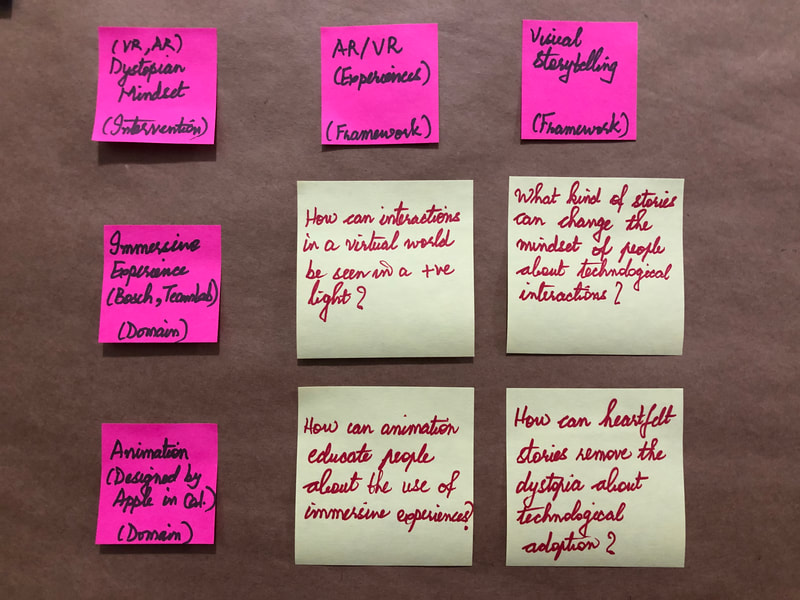 (VR, AR)
Dystopian
Mindset
(Intervention)
AR/VR
(Experiences)
(Framework)
Visual
Storytelling
(Framework)
Immersive
Experience
(Bosch, Teamlab)
(Domain)
How can interactions
in a virtual world
be seen in a +ve
light?
What kind of stories
can change the
mindset of people
about technological
interactions?
Animation
(Designed by
Apple in Cal.)
(Domain)
How can animation
educate people
about the use of
immersive experiences?
How can heartfelt
stories remove the
dystopia about
technological
adoption?